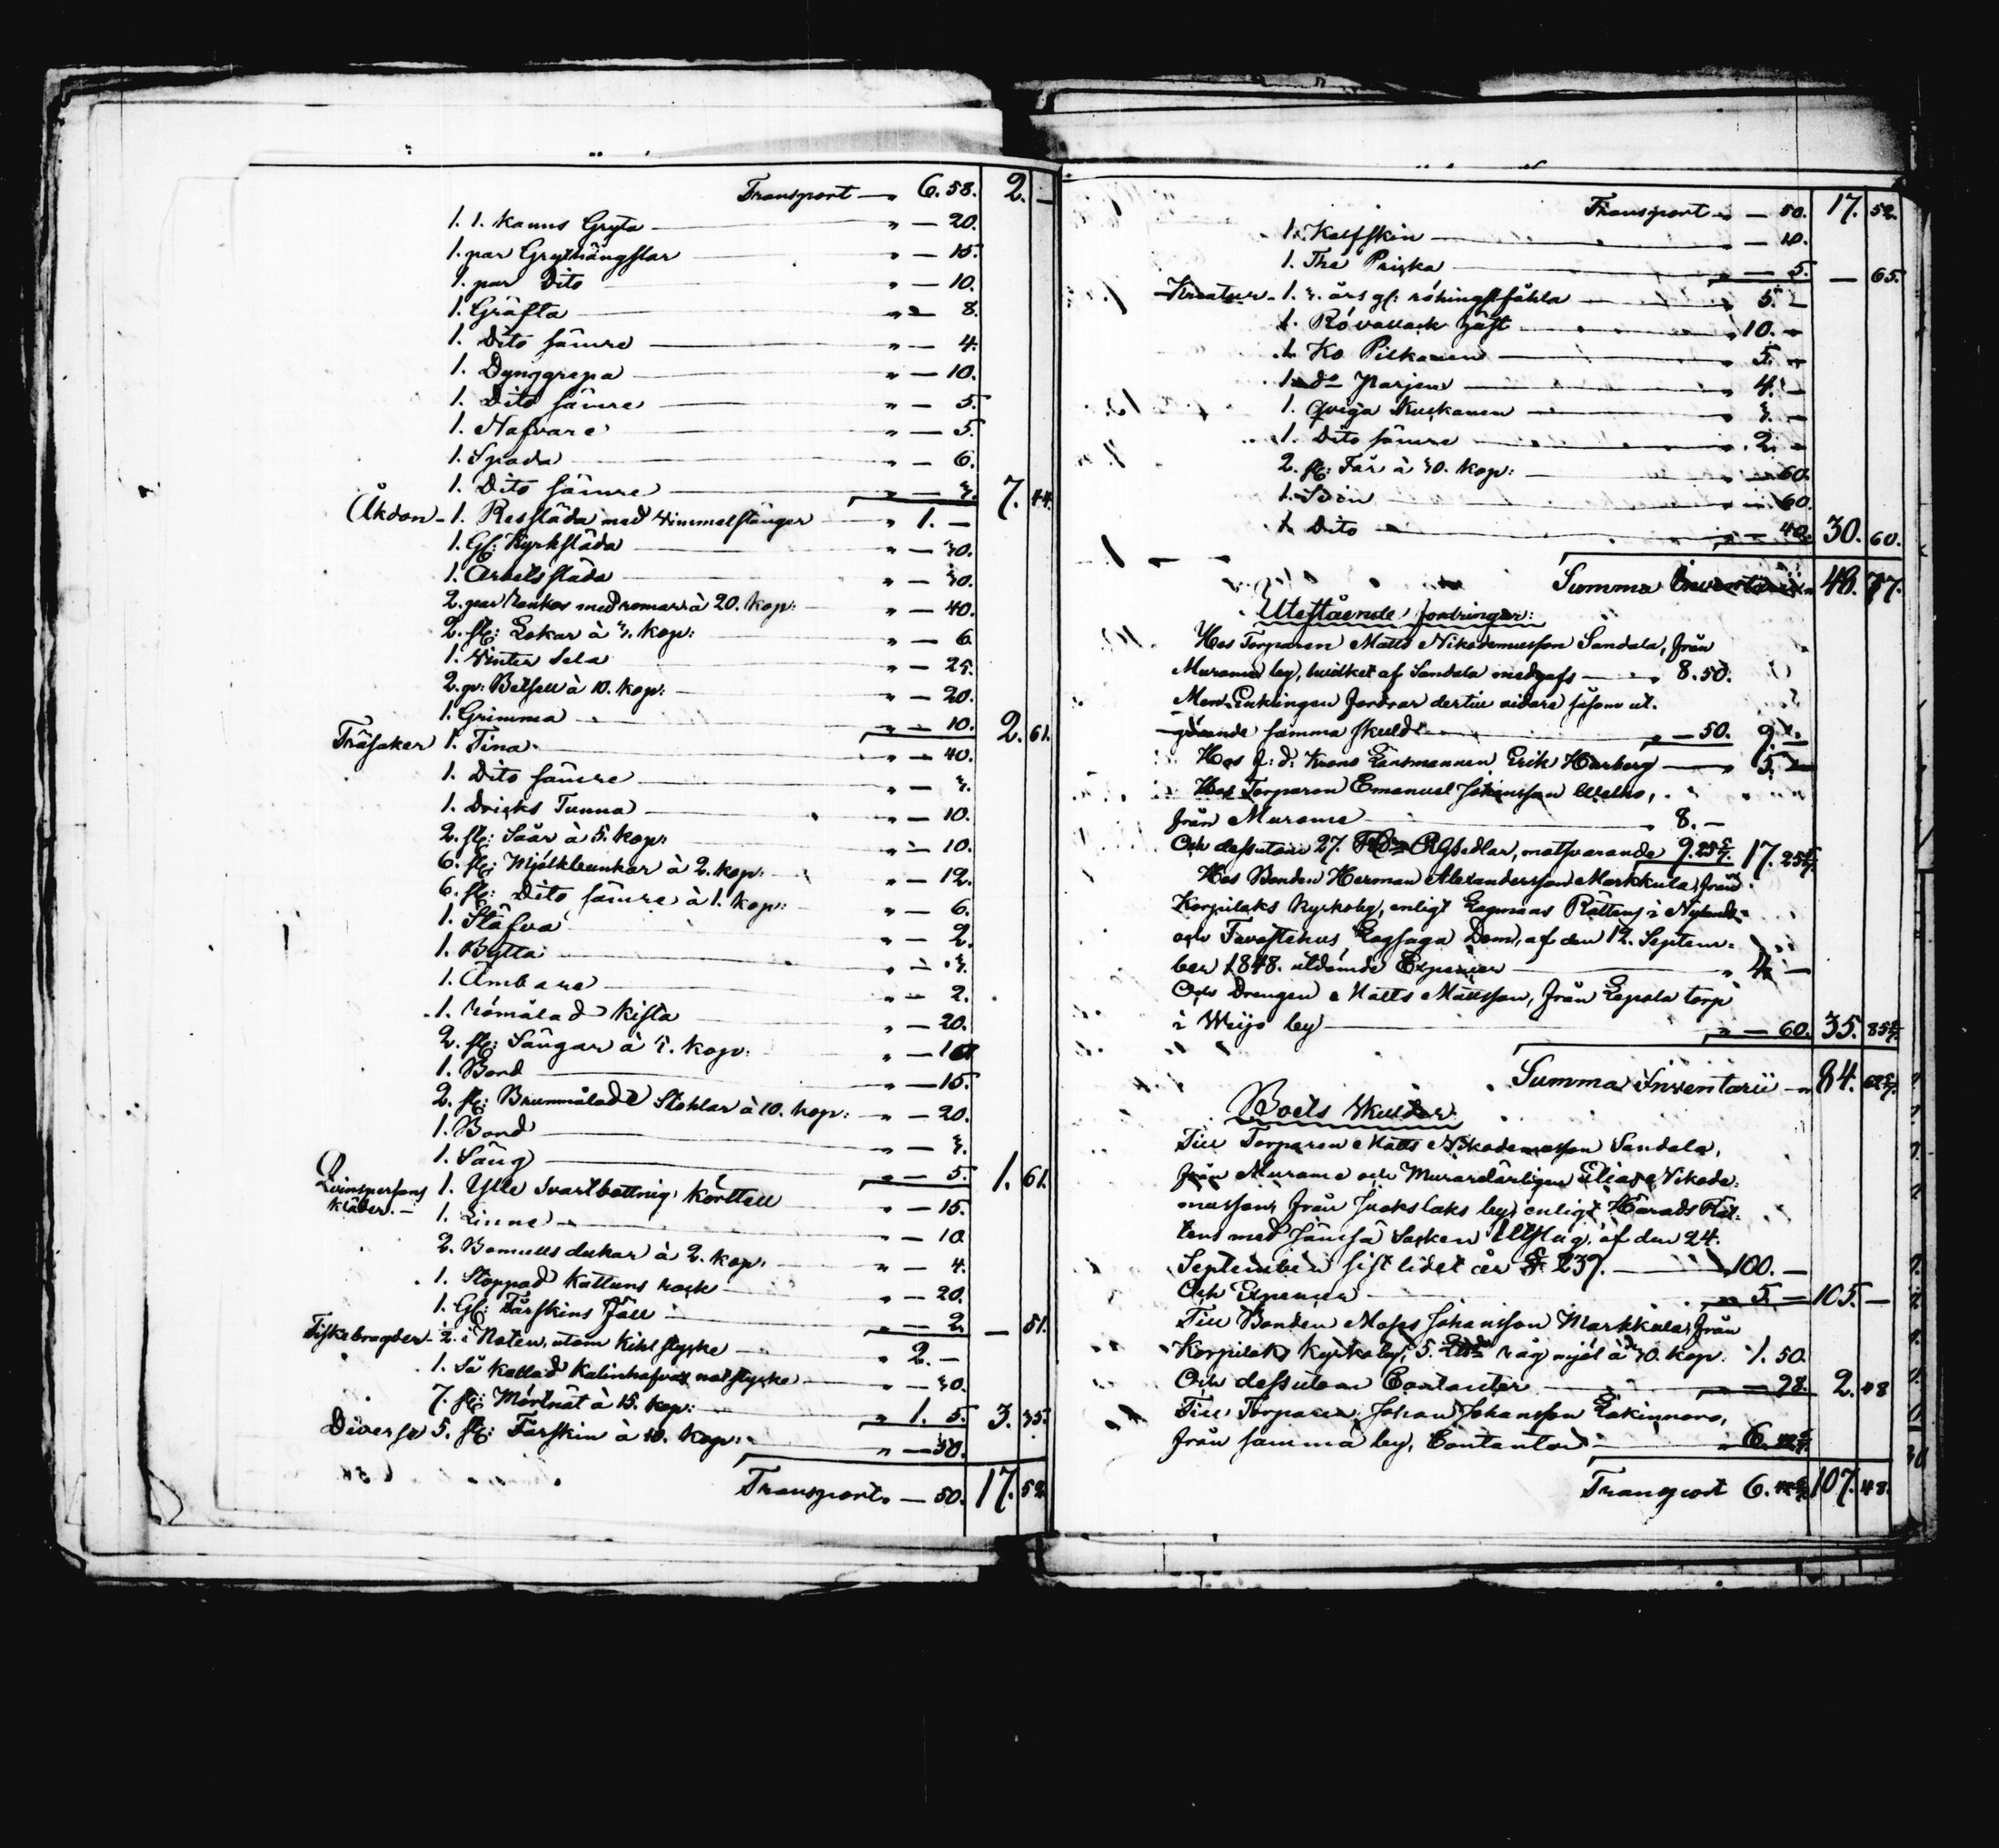 Transport — „ 6. 58. 2. —
1. 1. kanns Gryta — „ — 20.
1. par Grythängslar — „ — 15.
1. par Dito — „ — 10.
1. Gräfta — „ — 8.
1. Dito sämre — „ — 4.
1. Dynggrepa — „ — 10.
1. Dito sämre — „ — 5.
1. Nafvare — „ — 5.
1. Spada — „ — 6.
1. Dito sämre — „ — 3. 7. 44.
Åkdon — 1. Resläda med himmelstänger — „ 1. —
1. Gl: Kyrksläda — „ — 30.
1. Arbetssläda — „ — 30.
2. par med à 20. kop: — „ — 40.
2. st: Lokar à 3. kop: — „ — 6.
1. Vinter Sela — „ — 25.
2. st: Betsell à 10. kop: — „ — 20.
1. Grimma — „ — 10. 2. 61.
Träsaker 1. Tina — „ — 40.
1. Dito sämre — „ — 3.
1. Dricks Tunna — „ — 10.
2. st: Såar à 5. kop: „ — 10.
6. st: Mjölkbunkar à 2. kop: „ — 12.
6. st: Dito sämre à 1. kop: „ — 6.
1. Stäfva „ — 2.
1. Bytta „ — 3.
1. Ämbare „ — 2.
1. römålad kista „ — 20.
2. st: Sängar à 5. kop: „ — 10.
1. Bord — „ — 15.
2. st: Brunmålade Stohlar à 10. kop: „ — 20.
1. Bord — „ — 3.
1. Säng — „ — 5. 1. 61.
Qvinspersons 1. Ylle Svartbottnig Körttell „ — 15.
kläder. — 1. Linne — „ — 10.
2. Bomulls dukar à 2. kop: „ — 4.
1. Stoppad Kattuns rock „ — 20.
1. Gl: Fårskins Fäll — „ — 2. — 51.
Fiskebragder — ½. i Noten, utom Kihlstycke — „ 2. —
1. Så kallad not stycke „ — 30.
7. st: Mörtnät à 15. kop: „ 1. 5. 3. 35.
Diverse 5. st: Fårskin à 10. kop: „ — 50.
Transport „ — 50. 17. 52.
Transport „ — 50. 17. 52.
1. Kalfskin — „ — 10.
1. The Paiska — „ — 5. — 65.
Kreatur — 1. 3. års gl: fåhla — „ 5. —
1. Rö vallack häst — „ 10. —
1. Ko — „ 5. —
1. do — „ 4. —
1. Qviga — „ 3. —
1. Dito sämre — „ 2. —
2. st: Får à 30. kop: — „ — 60.
1. Svin — „ — 60.
1. Dito — „ — 40. 30. 60.
Summa 48. 77.
Utestående fordringar:
Hos Torparen Matts Nikodemusson Sandala, från
Murame by, hvilket af Sandala medgafs — „ 8. 50.
Men Enklingen fordrar dertill vidare såsom ut-
görande samma skuld — „ — 50. 9. —
Hos f: d: Krono Länsmannen Erik Harberg — „ 5. —
Hos Torparen Emanuel Johansson
från Murame — „ 8. —
Och dessutom 27. Rd Rgsedlar, motsvarande 9. 25 5/7. 17. 25 5/7.
Hos Bonden Herman Alexandersson Markkula, från
Korpilaks Kyrkoby, enligt Lagmans Rättens i Nylands
och Tavastehus Lagsaga Dom, af den 12. Septem-
ber 1848. utdömde Expenser — „ 4. —
Och Drengen Matts Mattsson, från Lepola torp
i by — „ — 60. 35. 85 5/7.
Summa Inventarii — „ 84. 62 5/7.
Boets Skulder
Till Torparen Matts Nikodemusson Sandala,
från Murame och Murarelärlingen Elias Nikode-
musson, från by, enligt Härads Rät-
tens med Jämsä Socken Utslag, af den 24.
September sist lidet år § 237. — „ 100. —
Och Expenser — „ 5. — 105. —
Till Bonden Moses Johansson Markkula, från
Korpilaks Kyrkoby, 5. råg mjöl à 30. kop: 1. 50.
Och dessutom Contanter — „ — 98. 2. 48
Till Torparen Johan Johansson
från samma by, Contanter — „ 6.
Transport 6. 107. 48.